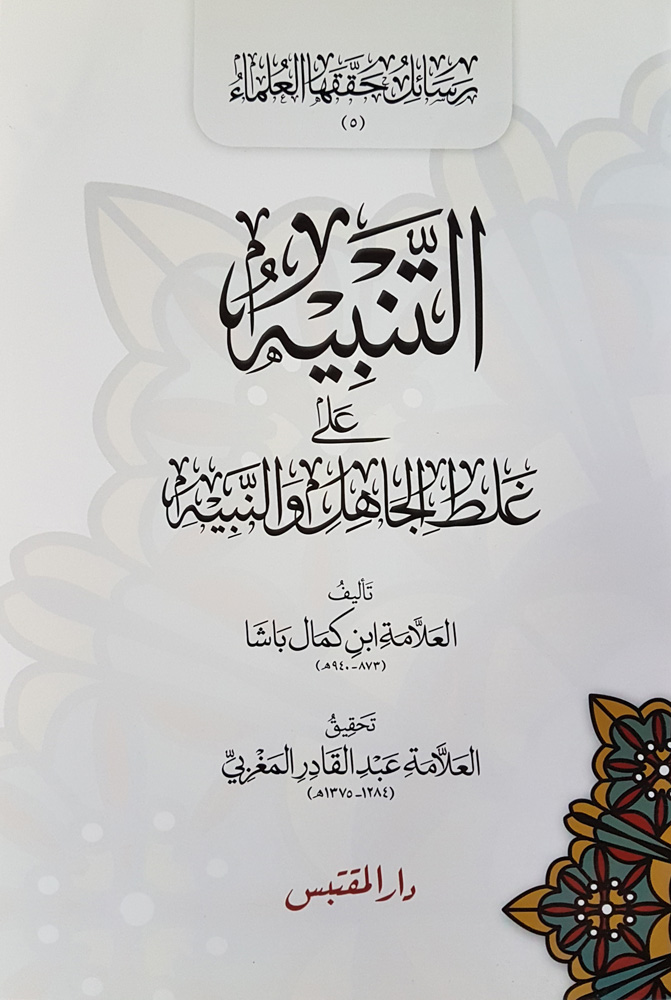 رَسَائِلُ حَقَّقَهَا العُلَمَاءُ
(٥)
التَّنْبِيْهُ
عَلَى
غَلَطِ الجَاهِلِ وَالنَّبِيْهِ
تَأليفُ
العَلَّامَةِ ابنِ كمَال بَاشَا
(٨٧٣-٩٤٠هـ)
تَحَقِيقُ
العَلَّامَةِ عَبْدِ القَادِرِ المَغْرِبيِّ
(١٢٨٤-١٣٧٥هـ)
دار المقتبس